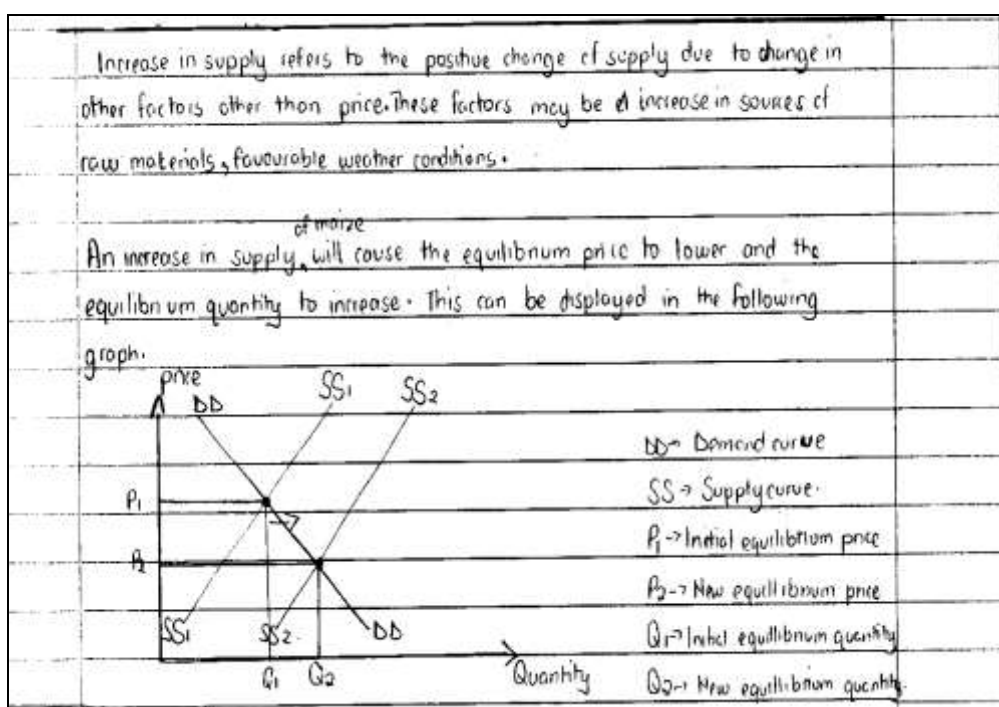 Increase in supply refers to the positive change of supply due to change in
other factors other than price. These factors may be increase in sources of
raw materials, favourable weather conditions.
of maize
An increase in supply, will cause the equilibrium price to lower and the
equilibrium quantity to increase. This can be displayed in the following
graph.
price
DD SS1 SS2
DD → Demand curve
SS → Supply curve.
P1
P1 → Initial equilibrium price
P2
P2 → New equillibrium price
SS1 SS2 DD
Q1 → Initial equillibrium quantity
Q1 Q2 Quantity
Q2 → New equillibrium quantity.